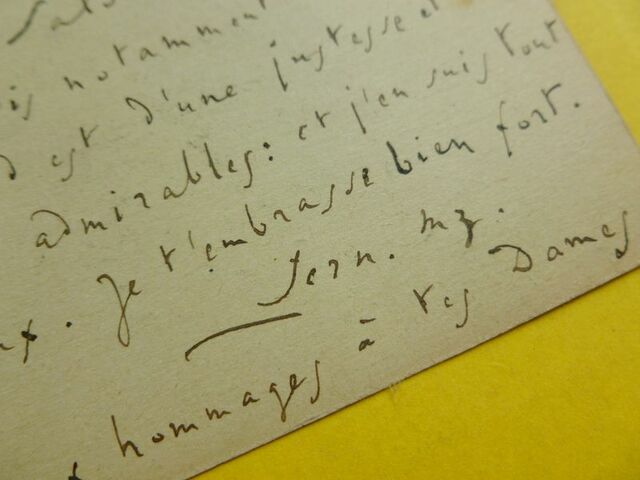 is notamment
est d'une justesse et
admirables: et j'en suis tout
Je t'embrasse bien fort.
Fern. Mz.
hommages à tes Dames